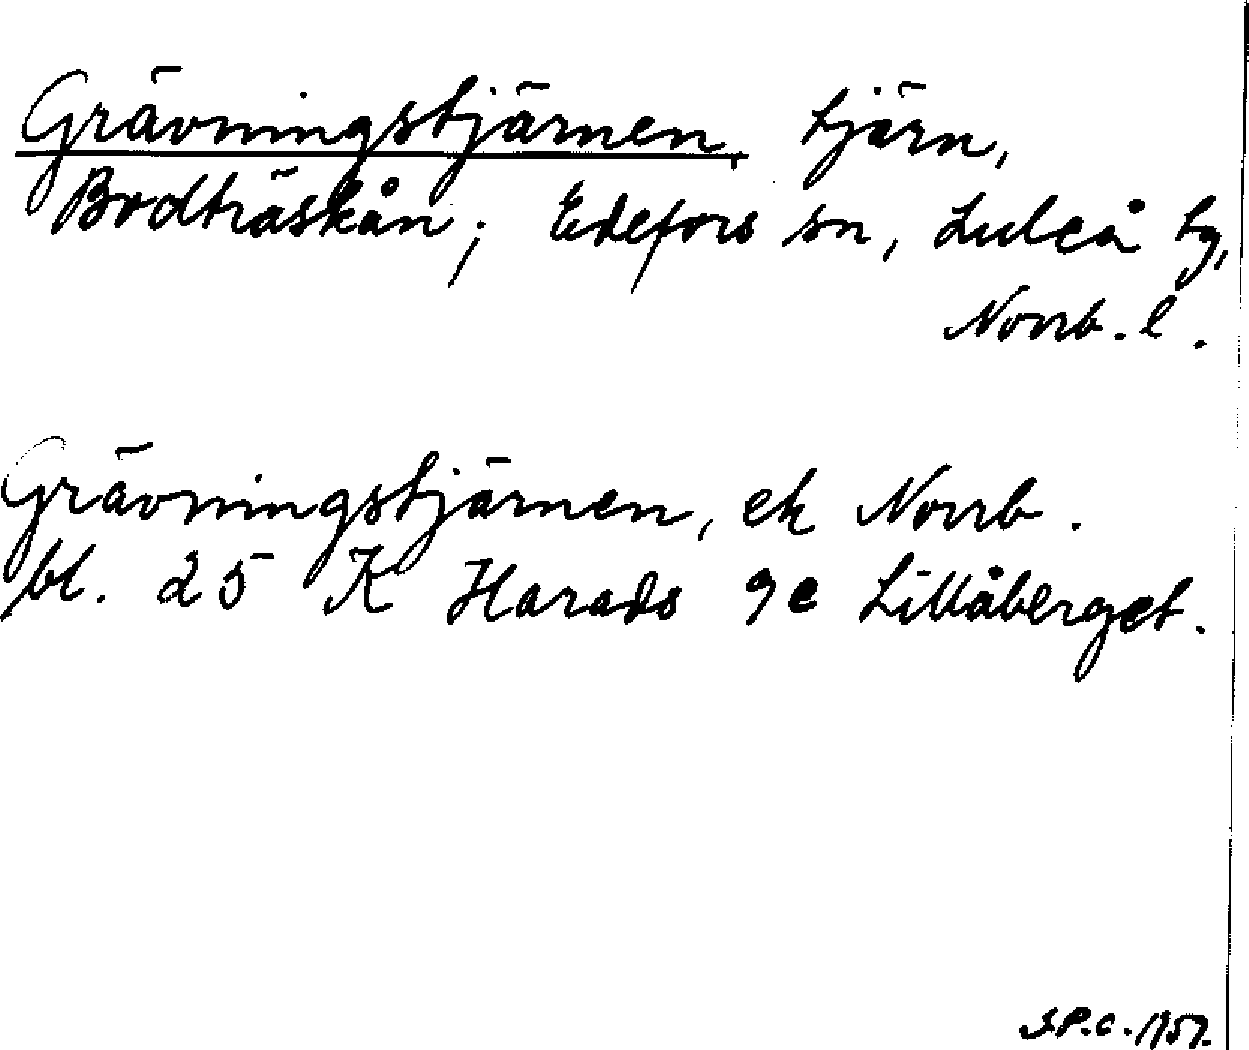 Grävningstjärnen, tjärn,
Bodträskån; Edefors sn, Luleå tg,
Norrb. l.
Grävningstjärnen, ek Norrb.
bl. 25 K Harads 9e Lillåberget.
S.P.C. 1957.